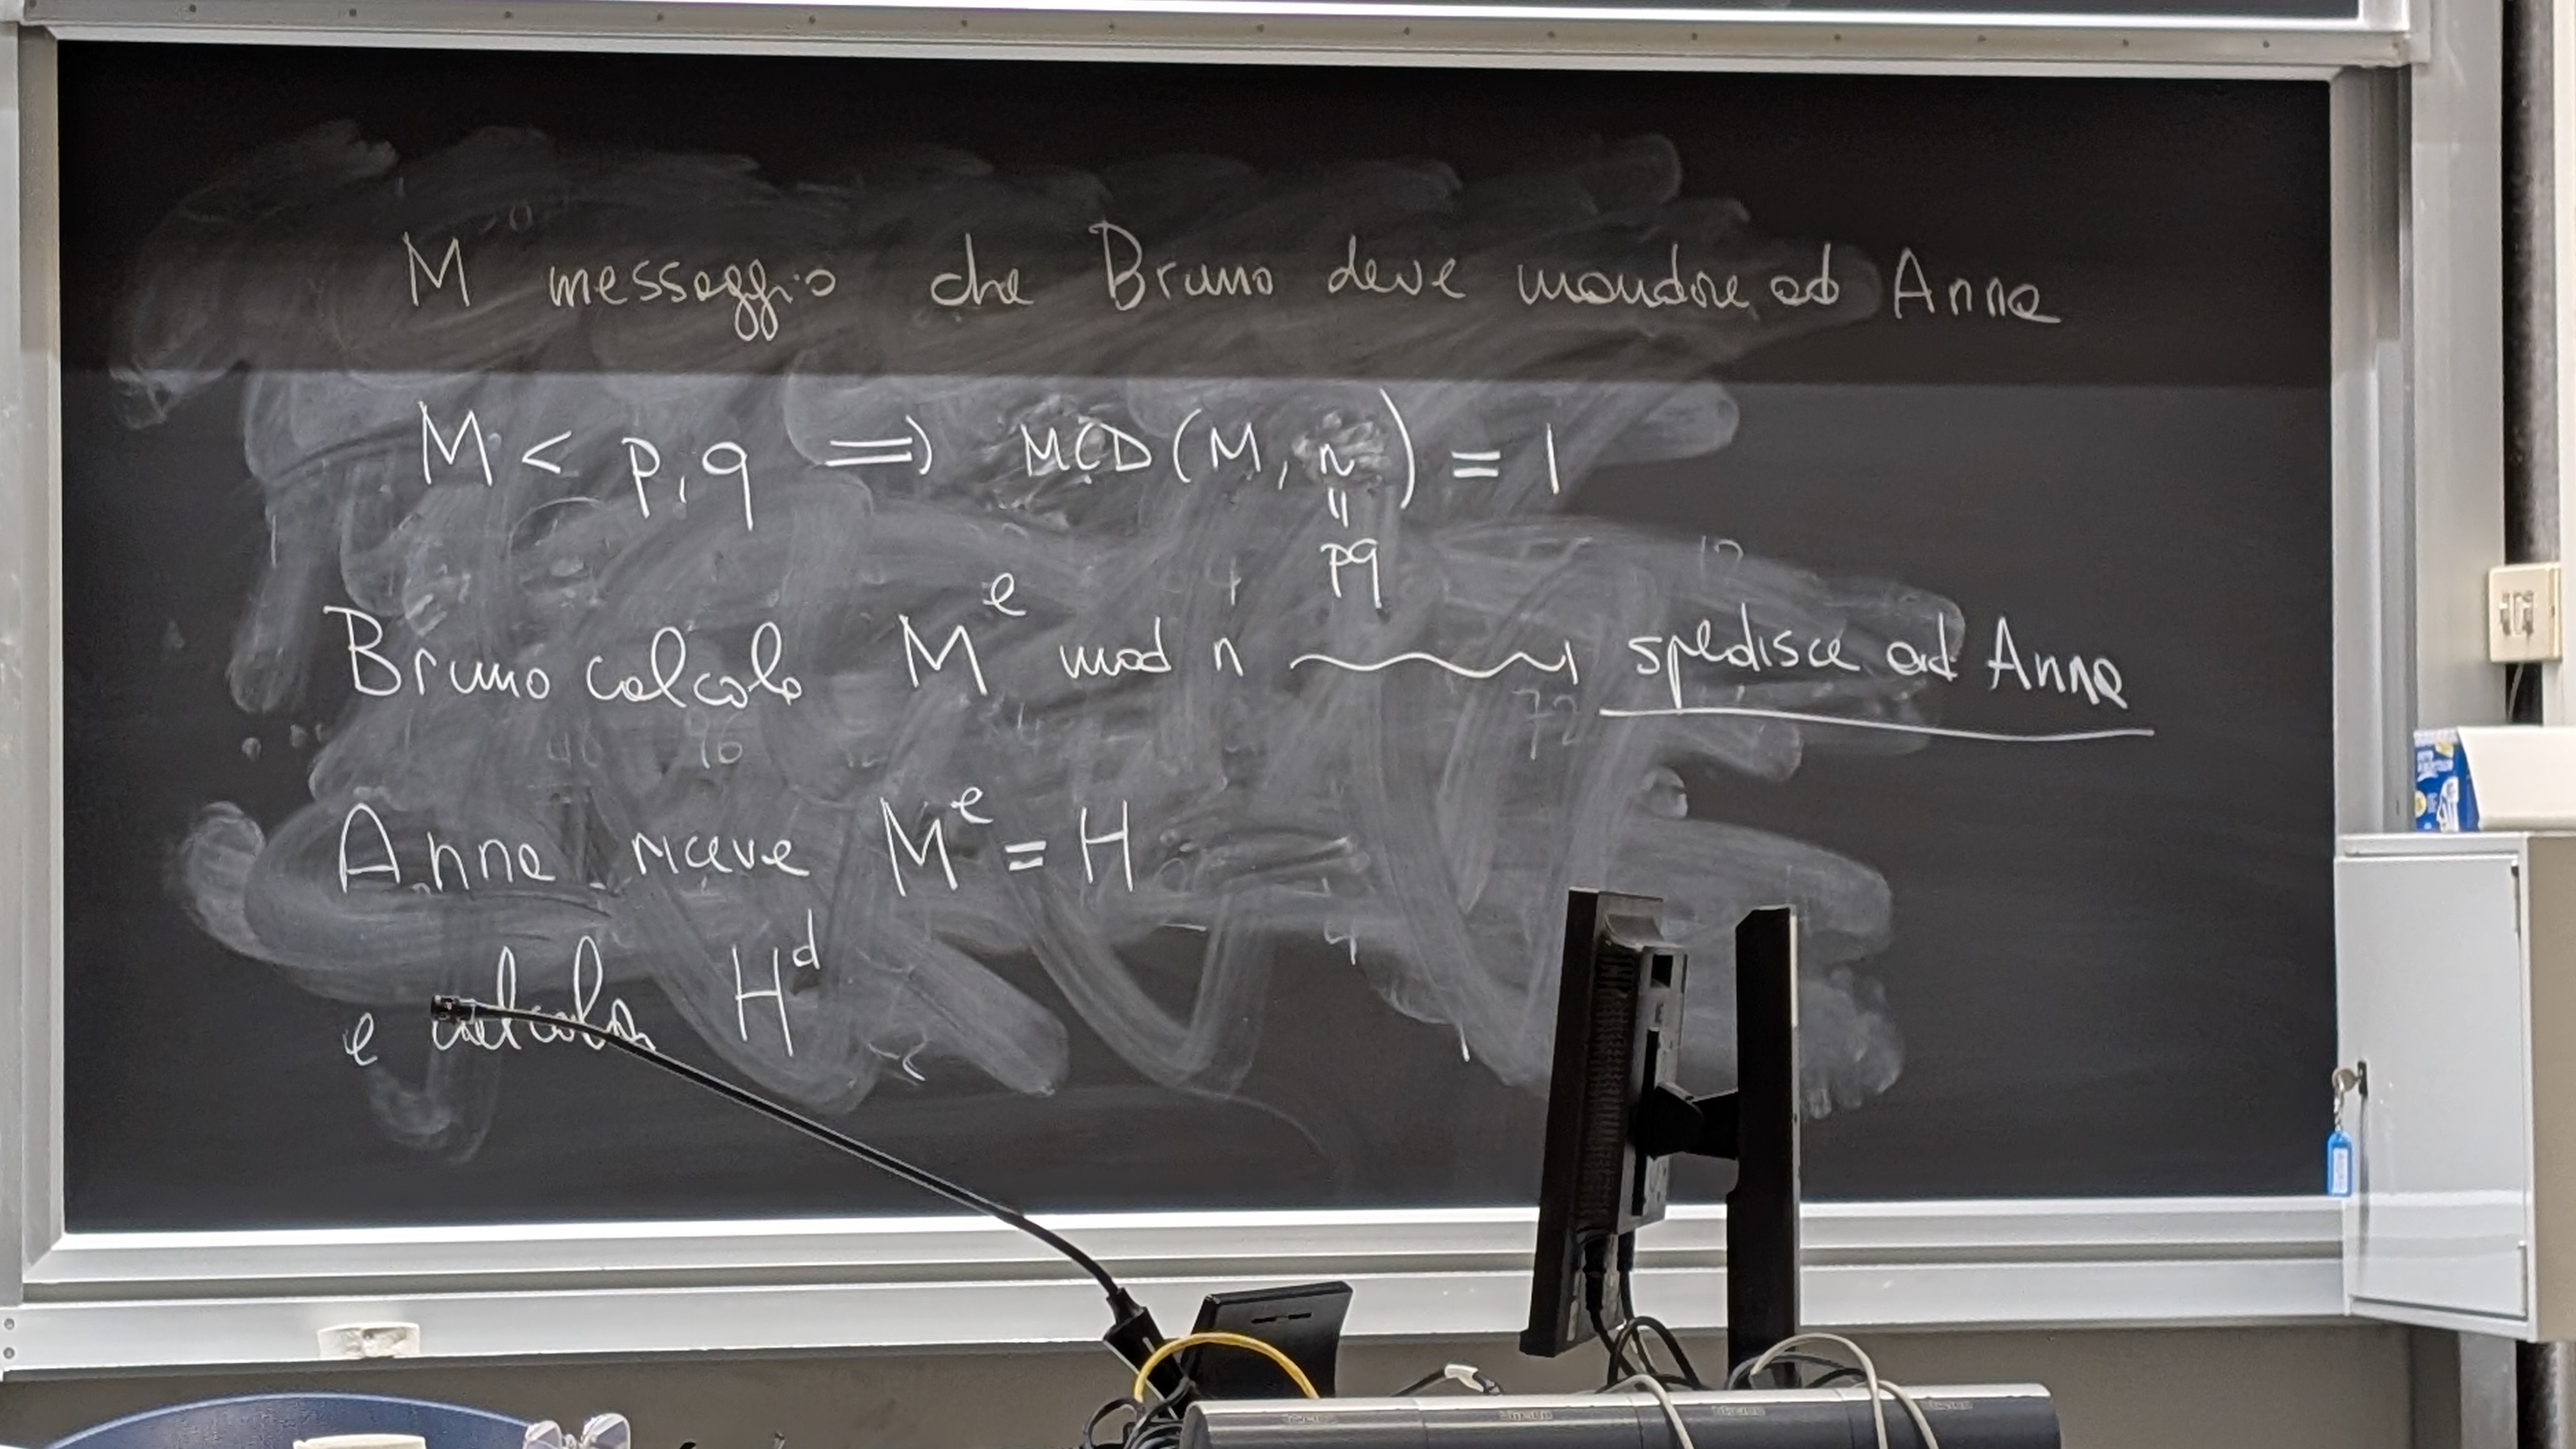 M messaggio che Bruno deve mandare ad Anna
M < p, q ⟹ MCD(M, n) = 1
||
pq
Bruno calcola M^e mod n ⇝ spedisce ad Anna
Anna riceve M^e = H
e calcola H^d